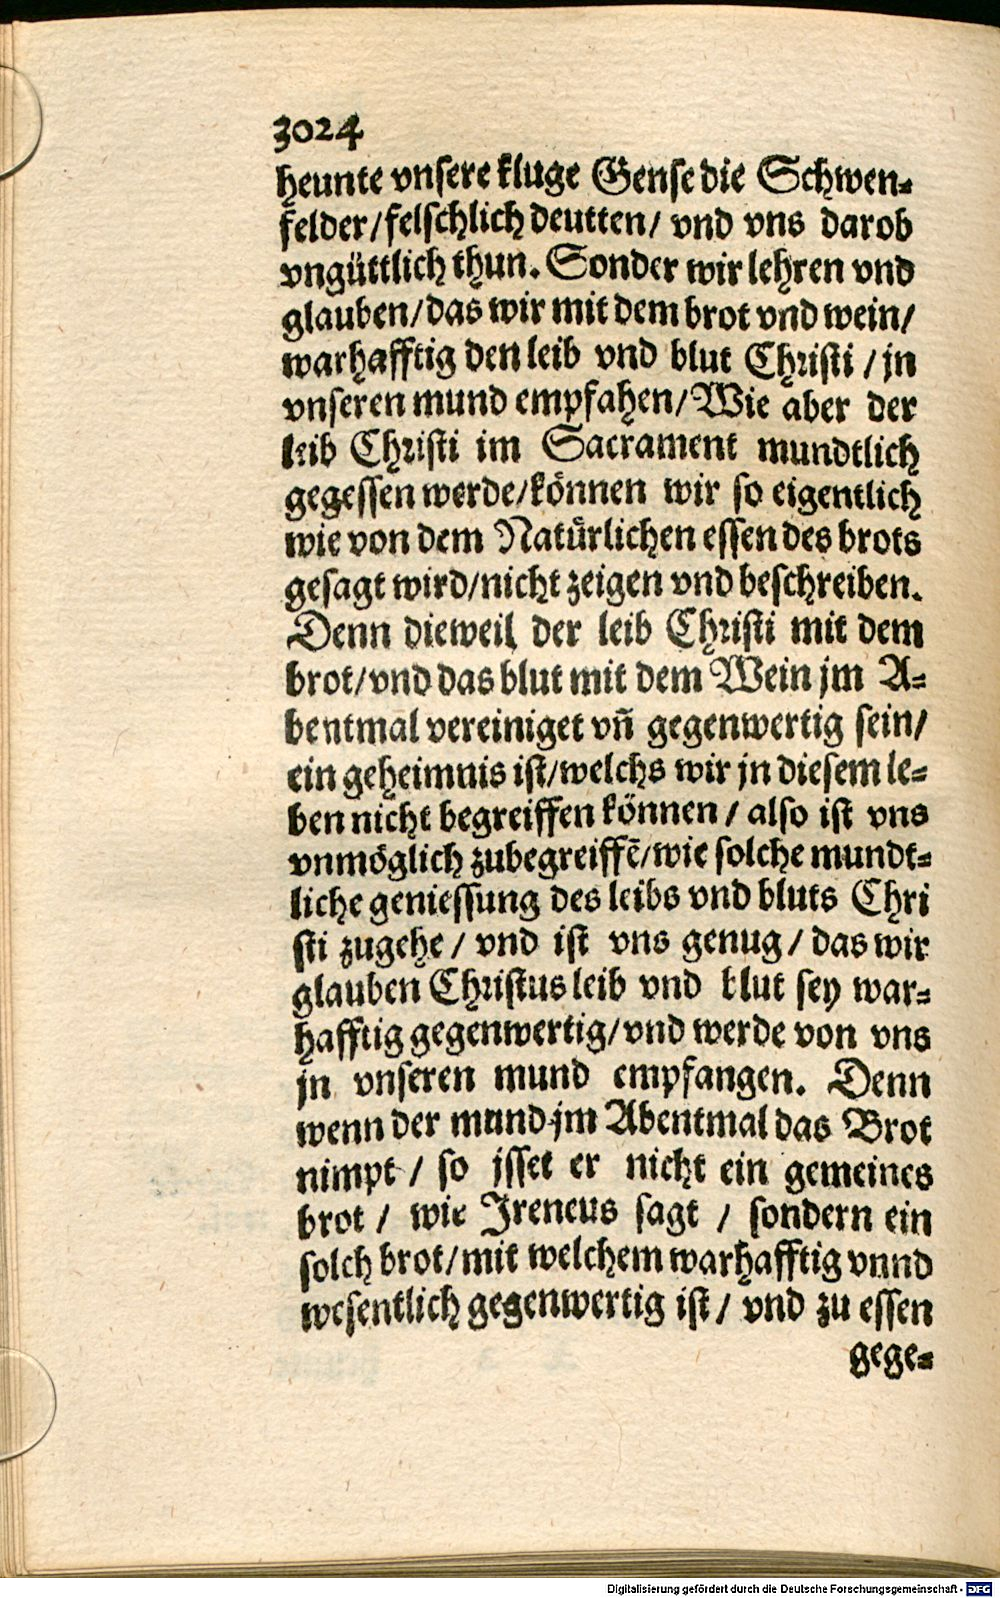 3024
heunte vnsere kluge Gense die Schwen-
felder/felschlich deutten/ vnd vns darob
vngüttlich thun. Sonder wir lehren vnd
glauben/das wir mit dem brot vnd wein/
warhafftig den leib vnd blut Christi /jn
vnseren mund empfahen/Wie aber der
leib Christi im Sacrament mundtlich
gegessen werde/können wir so eigentlich
wie von dem Natürlichen essen des brots
gesagt wird/nicht zeigen vnd beschreiben.
Denn dieweil der leib Christi mit dem
brot/vnd das blut mit dem Wein jm A-
bentmal vereiniget vñ gegenwertig sein/
ein geheimnis ist/welchs wir jn diesem le-
ben nicht begreiffen können / also ist vns
vnmöglich zubegreiffē/wie solche mundt-
liche geniessung des leibs vnd bluts Chri
sti zugehe / vnd ist vns genug / das wir
glauben Christus leib vnd blut sey war-
hafftig gegenwertig/vnd werde von vns
jn vnseren mund empfangen. Denn
wenn der mund jm Abentmal das Brot
nimpt / so jsset er nicht ein gemeines
brot / wie Ireneus sagt / sondern ein
solch brot/mit welchem warhafftig vnnd
wesentlich gegenwertig ist/ vnd zu essen
gege-
Digitalisierung gefördert durch die Deutsche Forschungsgemeinschaft - DFG